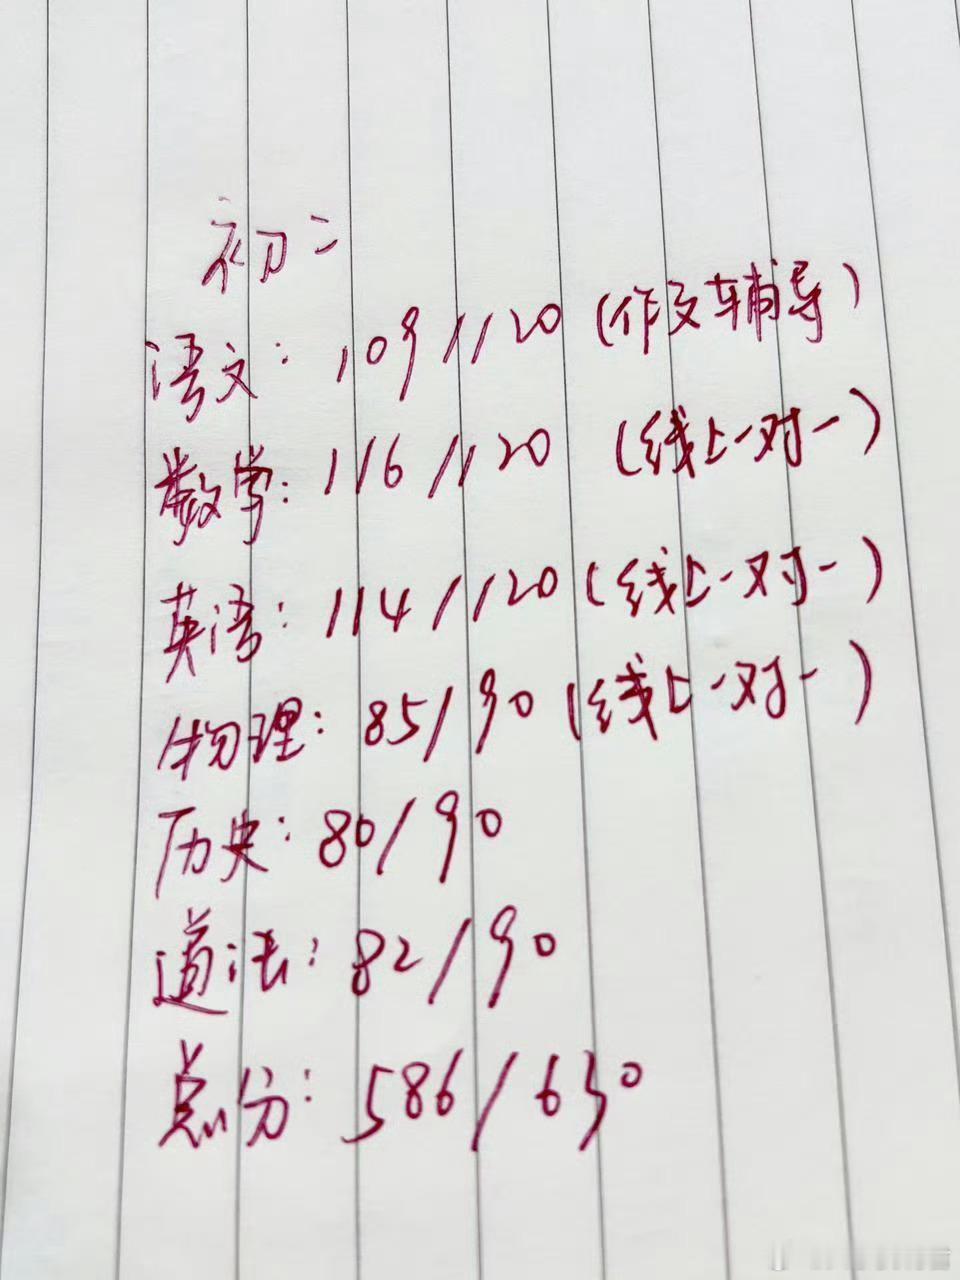 初二
语文：109/120（作文辅导）
数学：116/120（线上一对一）
英语：114/120（线上一对一）
物理：85/90（线上一对一）
历史：80/90
道法：82/90
总分：586/630